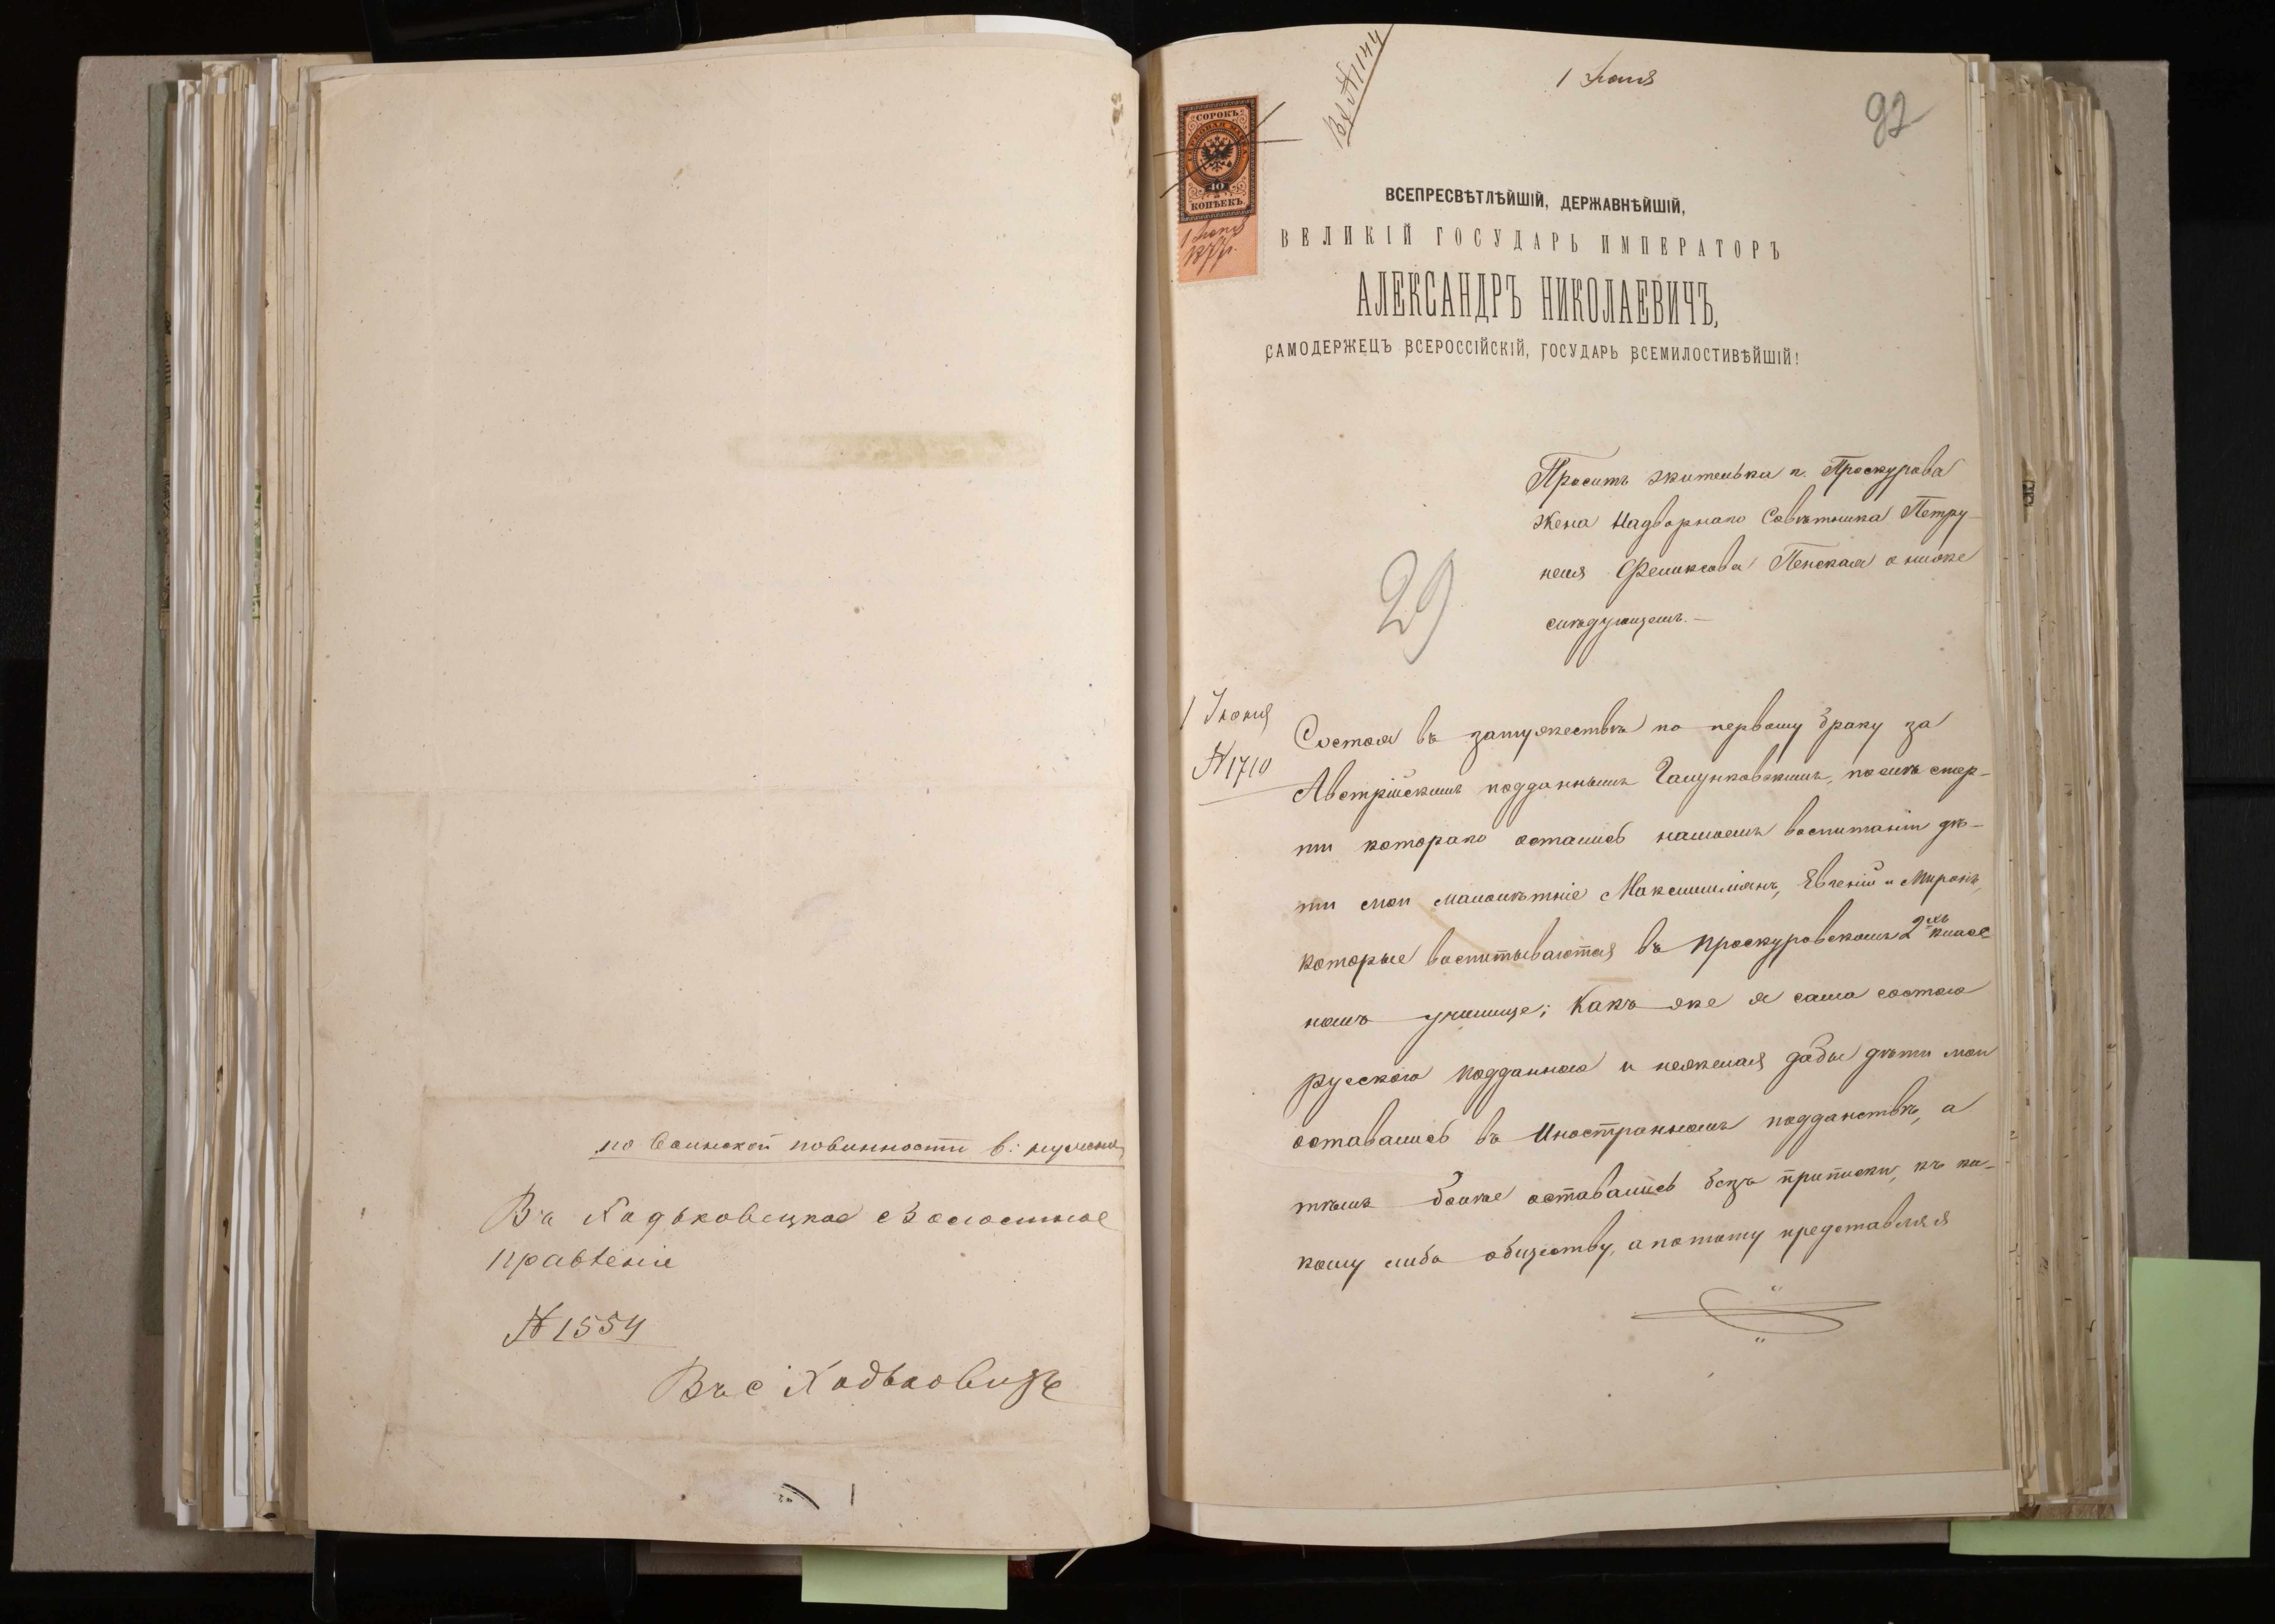 по воинской повинности в: нужное
Въ Хадьковецкое Волостное
правленіе
№ 1554
Въ с Хадьковцѣ
1 Іюня
Вх № 1144
92
СОРОКЪ
40
КОПѢЕКЪ.
1 Іюня
1877 г.
ВСЕПРЕСВѢТЛѢЙШІЙ, ДЕРЖАВНѢЙШІЙ,
ВЕЛИКІЙ ГОСУДАРЬ ИМПЕРАТОРЪ
АЛЕКСАНДРЪ НИКОЛАЕВИЧЪ,
САМОДЕРЖЕЦЪ ВСЕРОССІЙСКІЙ, ГОСУДАРЬ ВСЕМИЛОСТИВѢЙШІЙ!
Проситъ жителька г. Проскурова
жена Надворнаго Совѣтника Петру-
неля Феликсова Пенская о ниже
слѣдующемъ.—
29
1 Іюня
№ 1710
Состоя въ замужествѣ по первому браку за
Австрійскимъ подданнымъ Галунковскимъ, послѣ смер-
ти котораго остались намоемъ воспитаніи дѣ-
ти мои малолѣтніе Максимиліянъ, Евгеній и Миронъ,
которые воспитываются въ Проскуровскомъ 2хъ класс-
номъ училище; Какъ же я сама состою
русскою подданною и нежелая дабы дѣти мои
оставались въ Иностранномъ подданствѣ, а
тѣмъ болѣе оставались безъ приписки, къ ка-
кому либо обществу, а потому представляя